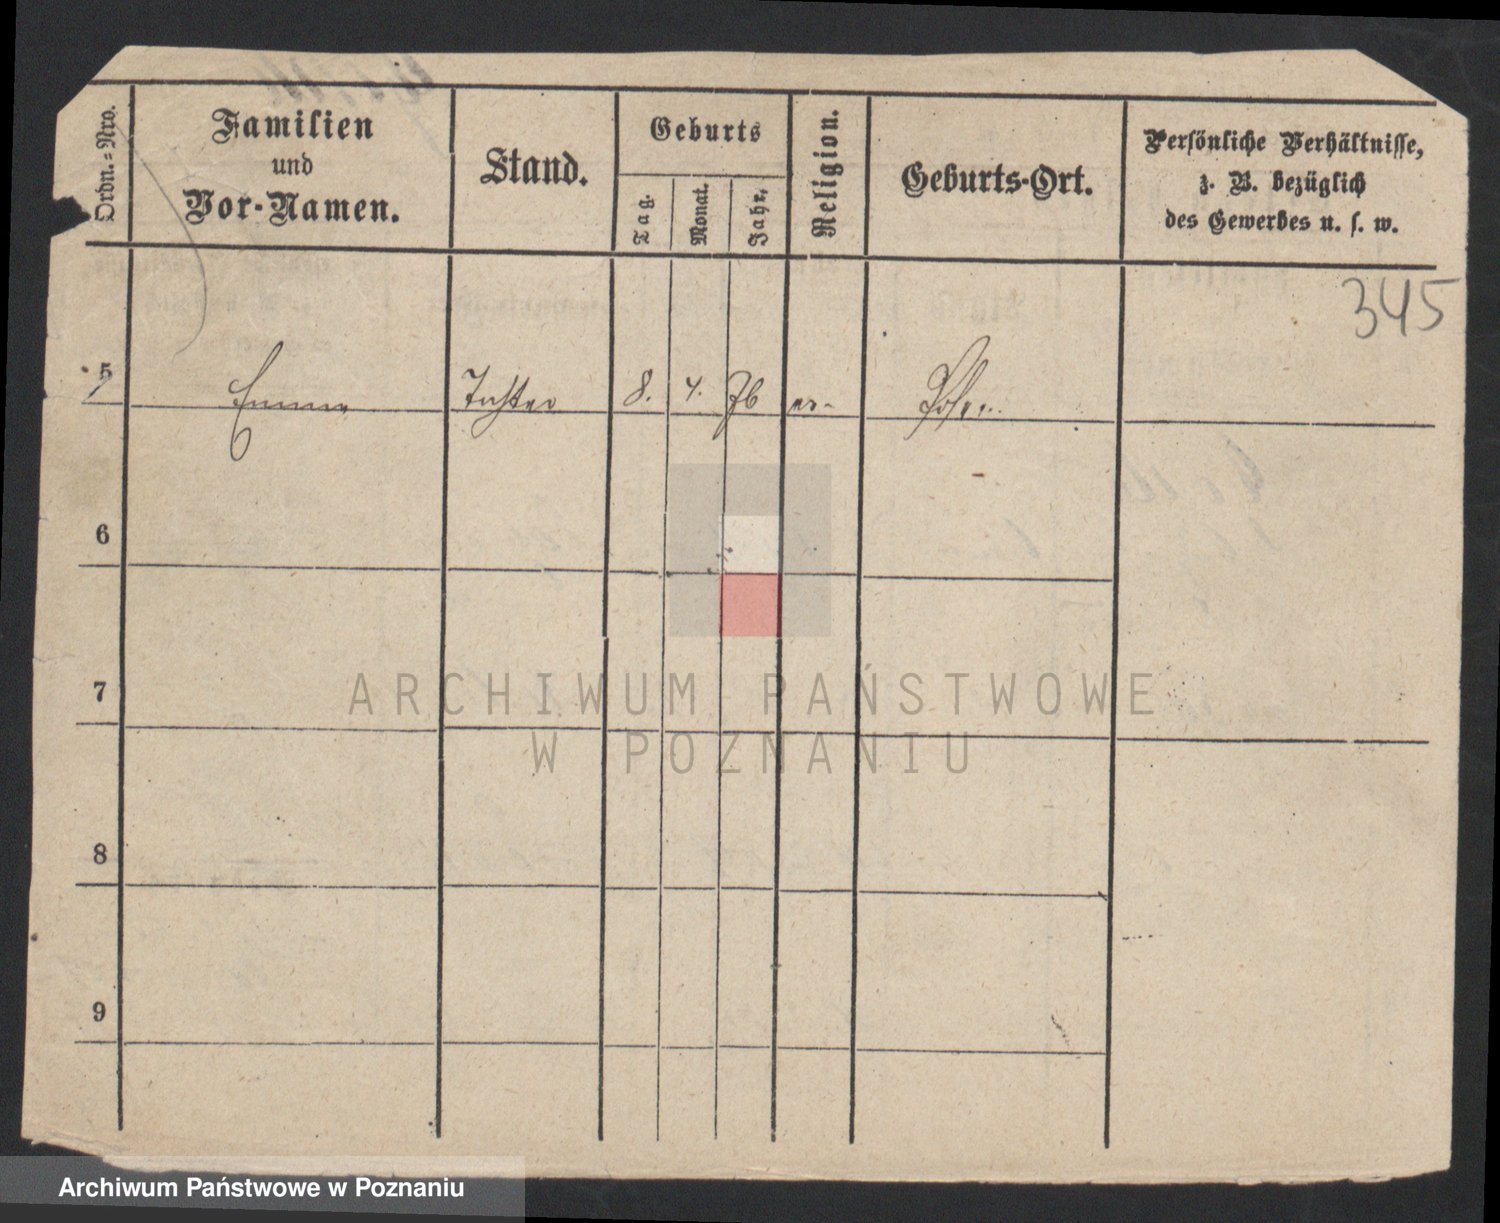 Ordn.=Nro.
Familien
und
Vor-Namen.
Stand.
Geburts
Tag.
Monat.
Jahr.
Religion.
Geburts-Ort.
Persönliche Verhältnisse,
z. B. bezüglich
des Gewerbes u. s. w.
345
5 Emma Tochter 8. 4. 76
6
7
8
9
ARCHIWUM PAŃSTWOWE
W POZNANIU
Archiwum Państwowe w Poznaniu